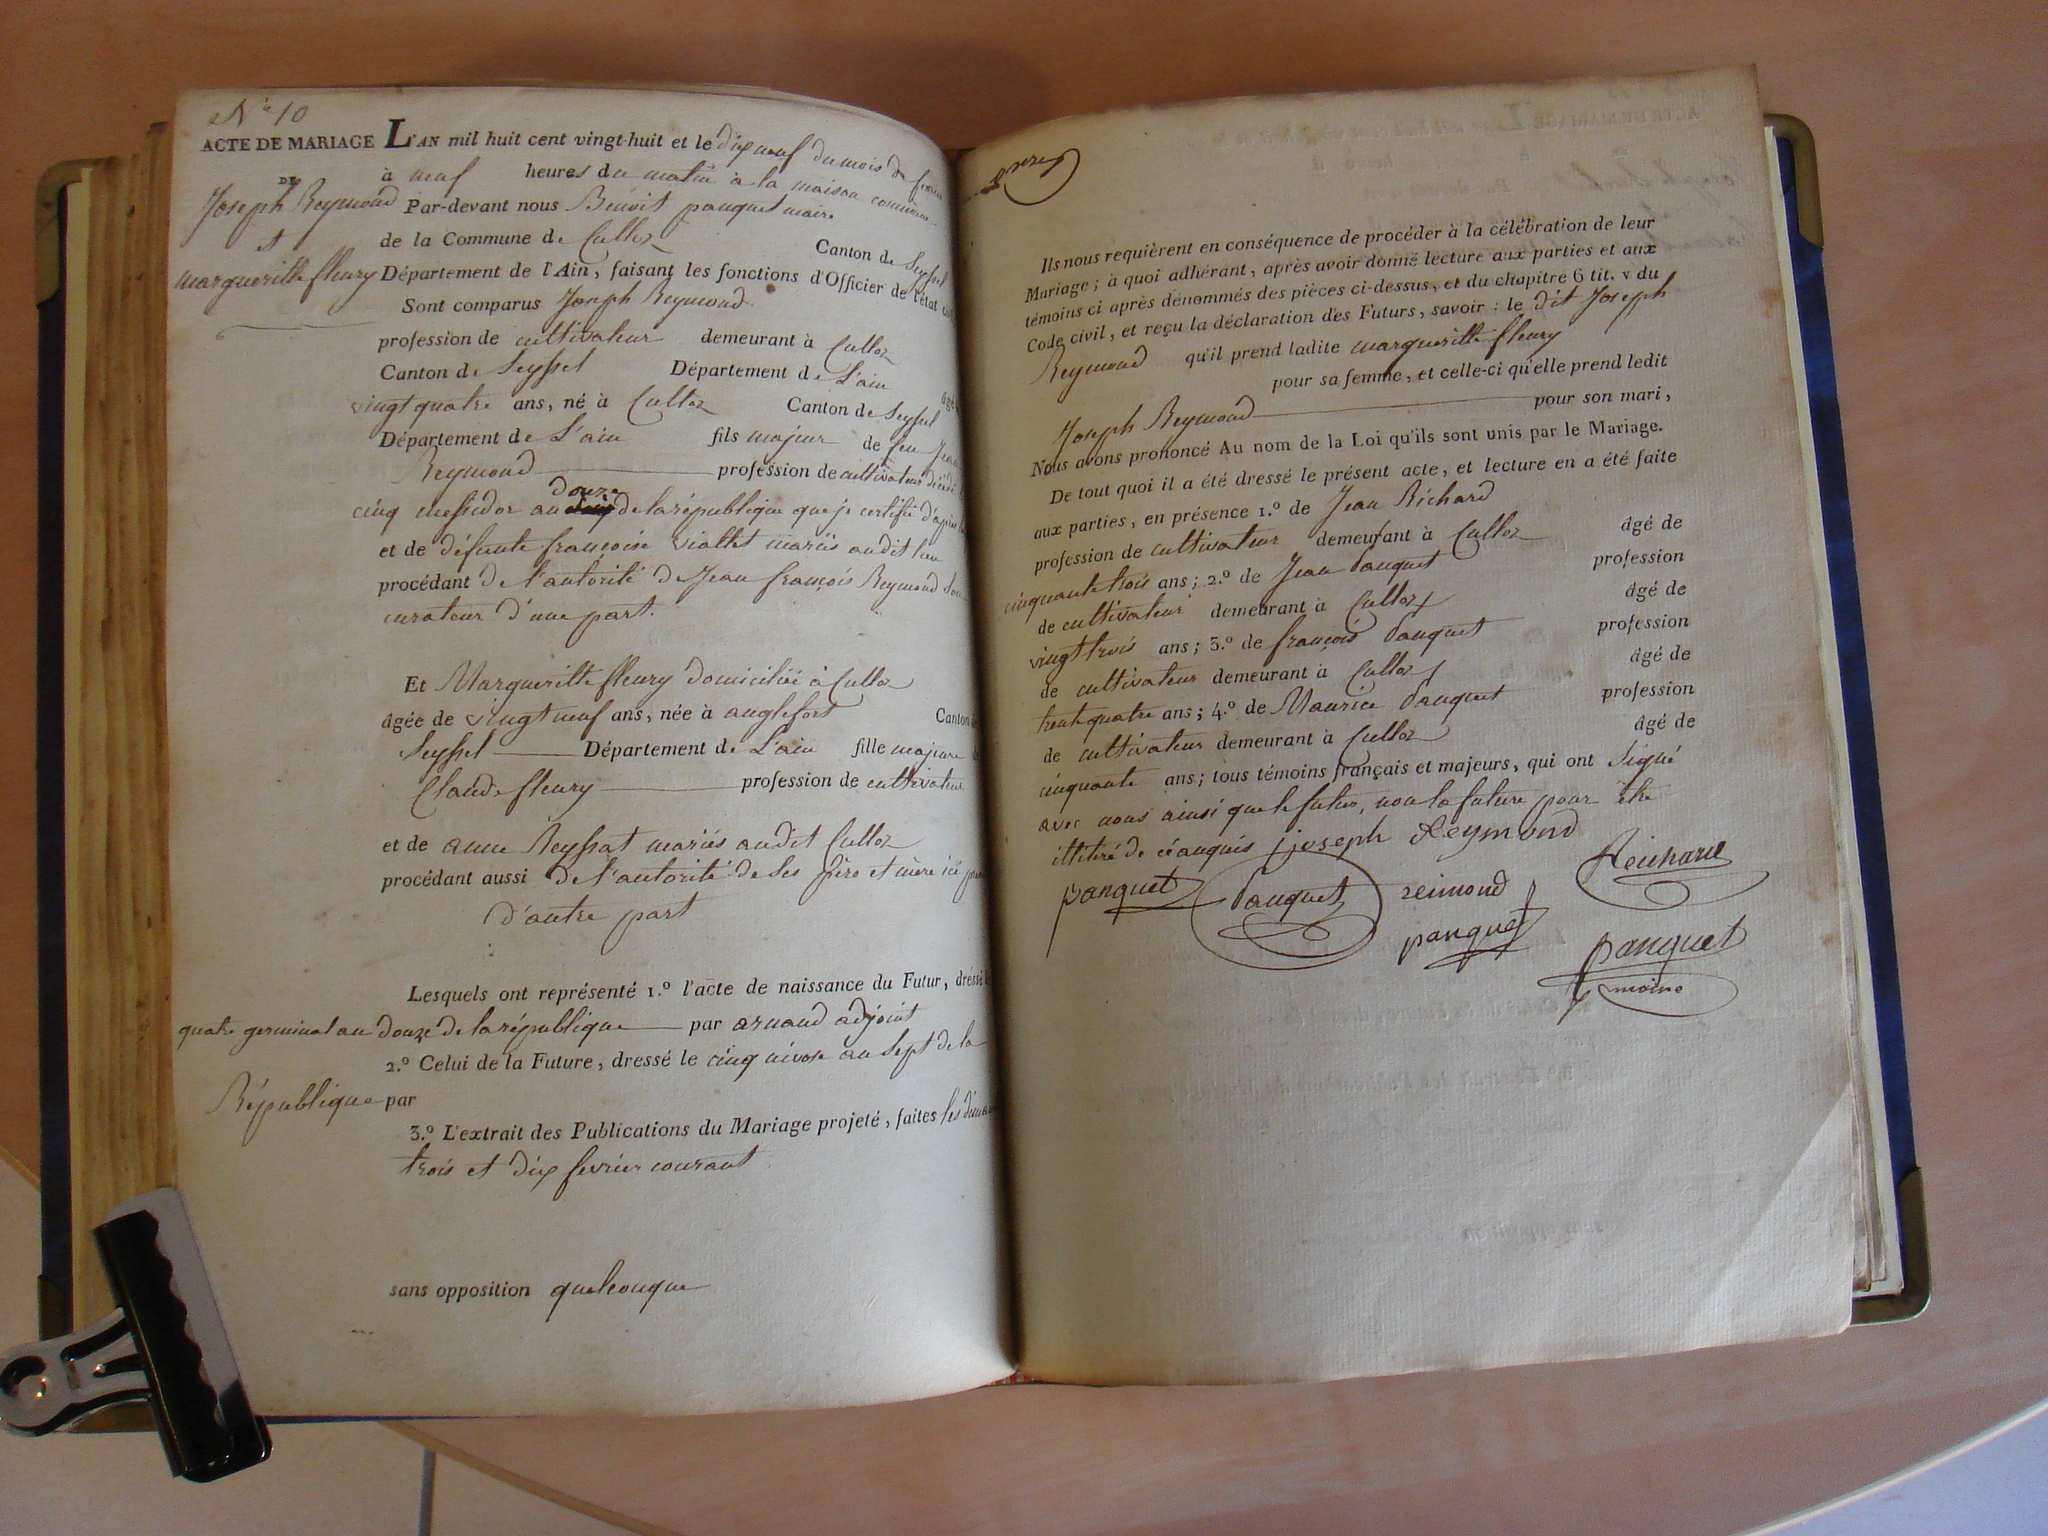 N° 10
ACTE DE MARIAGE L'AN mil huit cent vingt-huit et le dix neuf du mois de fevrier
DE
à neuf heures du matin à la maison commune
Joseph Reymond
Par-devant nous Benoit panquet maire
et
de la Commune de Culloz Canton de Seyssel
margueritte fleury
Département de l'Ain, faisant les fonctions d'Officier de l'état
Sont comparus Joseph Reymond
profession de cultivateur demeurant à Culloz
Canton de Seyssel Département de L'ain
vingt quatre ans, né à Culloz Canton de Seyssel
Département de L'ain fils majeur de feu Jean
Reymond profession de cultivateur décédé
douze
cinq messidor an de la république que je certifie d'après
et de défunte françoise viallet mariés audit lieu
procédant de l'autorité de Jean françois Reymond son
curateur d'une part.
Et Margueritte fleury domiciliée à Culloz
âgée de vingt neuf ans, née à anglefort Canton de
Seyssel Département de L'ain fille majeure
Claude fleury profession de cultivateur
et de anne Reyssat mariés audit Culloz
procédant aussi de l'autorité de ses père et mère ici
d'autre part
Lesquels ont représenté 1.° l'acte de naissance du Futur, dressé
quatre germinal an douze de la république par arnaud adjoint
2.° Celui de la Future, dressé le cinq nivose an sept de la
République par
3.° L'extrait des Publications du Mariage projeté, faites les
trois et dix fevrier courant
sans opposition quelconque
Ils nous requièrent en conséquence de procéder à la célébration de leur
Mariage ; à quoi adhérant, après avoir donné lecture aux parties et aux
témoins ci après dénommés des pièces ci-dessus, et du chapitre 6 tit. v du
Code civil, et reçu la déclaration des Futurs, savoir : le dit Joseph
Reymond qu'il prend ladite margueritte fleury
pour sa femme, et celle-ci qu'elle prend ledit
Joseph Reymond pour son mari,
Nous avons prononcé Au nom de la Loi qu'ils sont unis par le Mariage.
De tout quoi il a été dressé le présent acte, et lecture en a été faite
aux parties, en présence 1.° de Jean Richard
profession de cultivateur demeurant à Culloz âgé de
cinquante trois ans ; 2.° de Jean Panquet profession
de cultivateur demeurant à Culloz âgé de
vingt trois ans ; 3.° de françois Panquet profession
de cultivateur demeurant à Culloz âgé de
trente quatre ans ; 4.° de Maurice Panquet profession
de cultivateur demeurant à Culloz âgé de
cinquante ans ; tous témoins français et majeurs, qui ont signé
avec nous ainsi que le futur, non la future pour être
illitéré de ce anquis joseph Reymond
panquet Panquet reimond Reichard
panquet panquet
maire